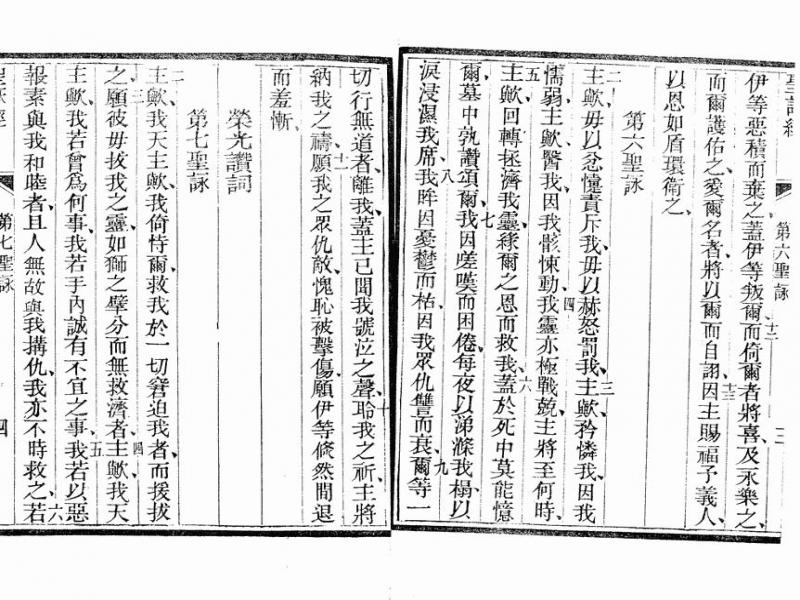 聖詠經
第六聖詠
伊等惡積而棄之、蓋伊等叛爾、十二而倚爾者將喜、及永樂之、
而爾護佑之、愛爾名者將以爾而自詡、十三因主賜福予義人、
以恩如盾環衛之、
第六聖詠
二主歟、毋以忿懥責斥我、毋以赫怒罰我、三主歟、矜憐我、因我
懦弱、主歟、醫我、因我骸悚動、四我靈亦極戰兢、主將至何時、
五主歟、回轉拯濟我靈、緣爾之恩而救我、六蓋於死中莫能憶
爾、墓中孰讚頌爾、七我因嗟嘆而困倦、每夜以涕滌我榻、以
淚浸濕我席、八我眸因憂鬱而枯、因我眾仇讐而衰、九爾等一
切行無道者離我、蓋主已聞我號泣之聲、十聆我之祈、主將
納我之禱、十一願我之眾仇敵、愧恥被擊傷、願伊等倏然間退
而羞慚、
榮光讚詞
第七聖詠
二主歟、我天主歟、我倚恃爾、救我於一切窘迫我者、而援拔
之、三願彼毋拔我之靈、如獅之擘分而無救濟者、四主歟、我天
主歟、我若曾為何事、我若手內誠有不宜之事、五我若以惡
報素與我和睦者、且人無故與我搆仇、我亦不時救之、六若
聖詠經
第七聖詠
四